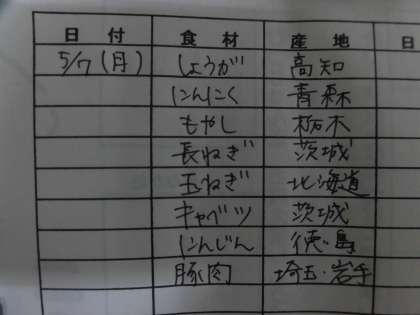 日付 食材 産地 日
5/7(月) しょうが 高知
にんにく 青森
もやし 栃木
長ねぎ 茨城
玉ねぎ 北海道
キャベツ 茨城
にんじん 徳島
豚肉 埼玉・岩手